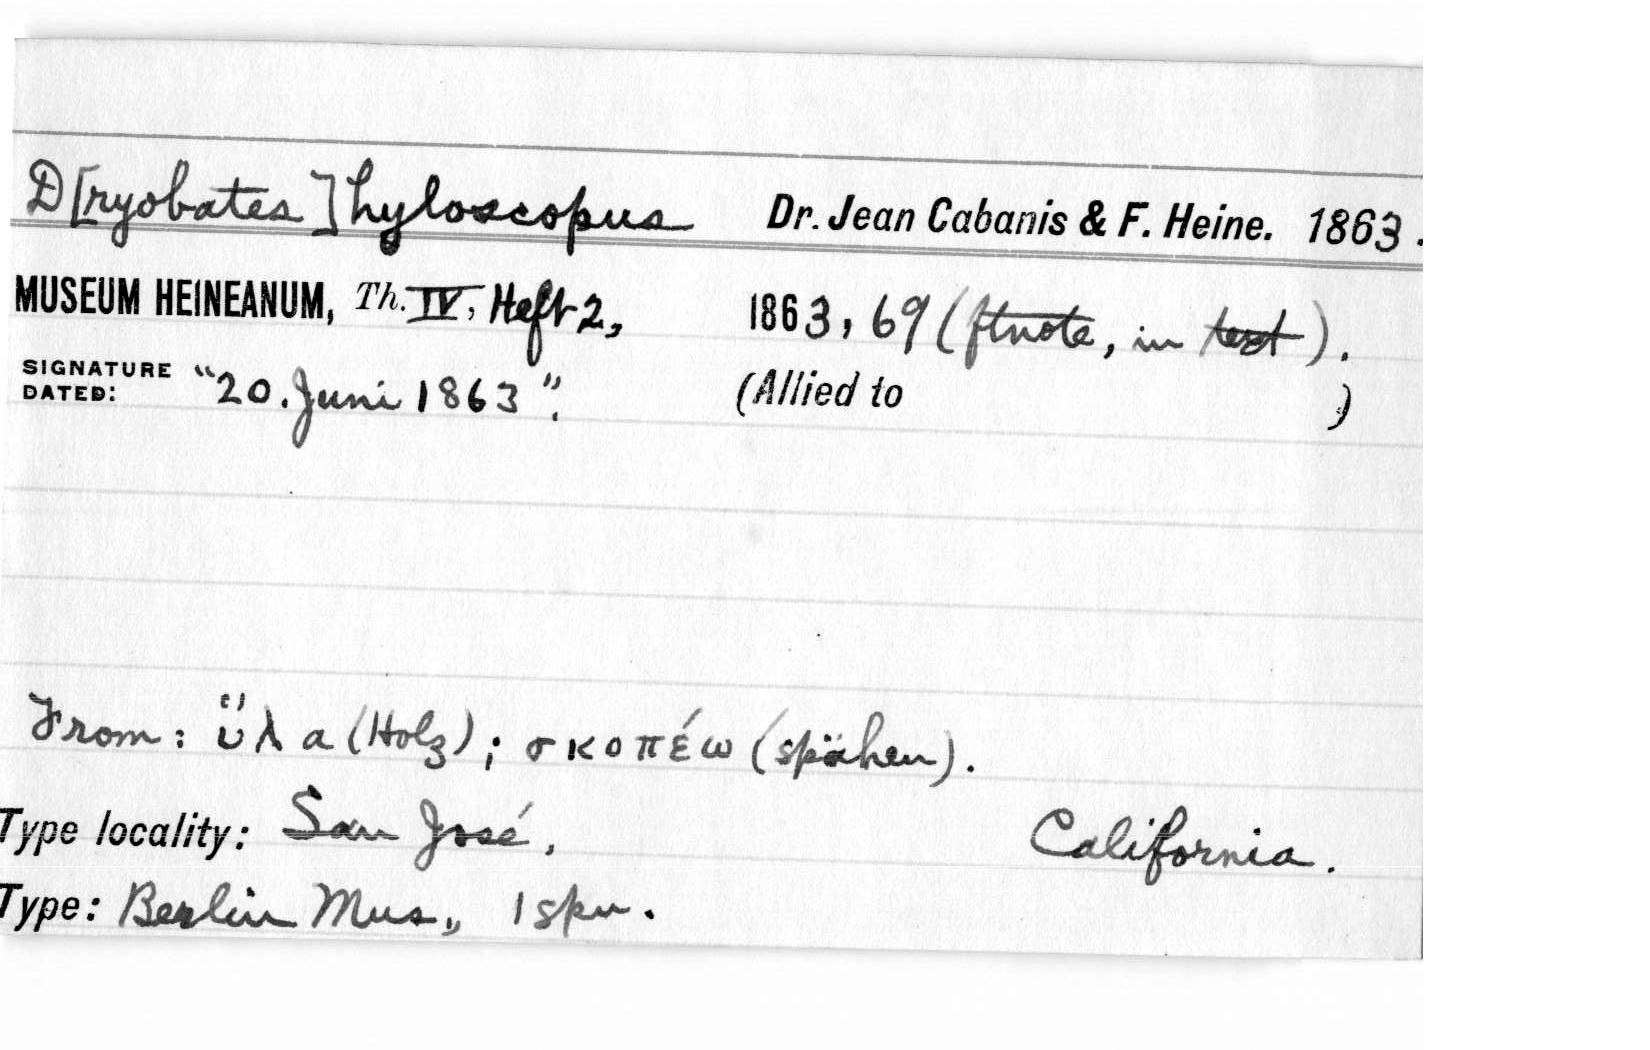 D[ryobates] hyloscopus Dr. Jean Cabanis & F. Heine. 1863.
MUSEUM HEINEANUM, Th. IV, Heft 2, 1863, 69 (ftnote, in text).
SIGNATURE DATED: "20. Juni 1863". (Allied to )
From: ὕλα (Holz); σκοπέω (spähen).
Type locality: San José, California.
Type: Berlin Mus., 1 spn.